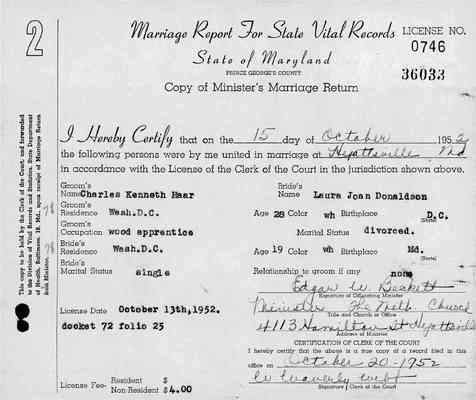 2
Marriage Report For State Vital Records
LICENSE NO.
0746
State of Maryland
PRINCE GEORGE'S COUNTY
36033
Copy of Minister's Marriage Return
This copy to be held by the Clerk of the Court, and forwarded
to the Division of Vital Records and Statistics, State Department
of Health, Baltimore, 18, Md., upon receipt of Marriage Return
from Minister.
I Hereby Certify that on the 15 day of October 1952
the following persons were by me united in marriage at Hyattsville Md
in accordance with the License of the Clerk of the Court in the jurisdiction shown above.
Groom's Name Charles Kenneth Haar Bride's Name Laura Joan Donaldson
Groom's Residence Wash.D.C. Age 28 Color wh Birthplace D.C.
(State)
Groom's Occupation wood apprentice Marital Status divorced.
Bride's Residence Wash.D.C. Age 19 Color wh Birthplace Md.
(State)
Bride's Marital Status single Relationship to groom if any none
Edgar W. Beckett
Signature of Officiating Minister
Minister The Meth. Church
Title and Church or Office
License Date October 13th,1952.
4113 Hamilton St Hyattsville
Address of Minister
docket 72 folio 25
CERTIFICATION OF CLERK OF THE COURT
I hereby certify that the above is a true copy of a record filed in this
office on October 20-1952
W Waverly Webb
Signature, Clerk of the Court
License Fee- Resident $
Non Resident $4.00